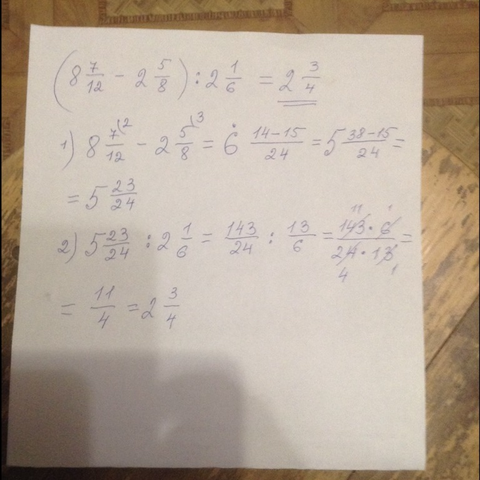 (8 7/12 − 2 5/8) : 2 1/6 = 2 3/4
1) 8 7\2/12 − 2 5\3/8 = 6 14−15/24 = 5 38−15/24 =
= 5 23/24
2) 5 23/24 : 2 1/6 = 143/24 : 13/6 = 143 11 · 6 1/24 4 · 13 1 =
= 11/4 = 2 3/4